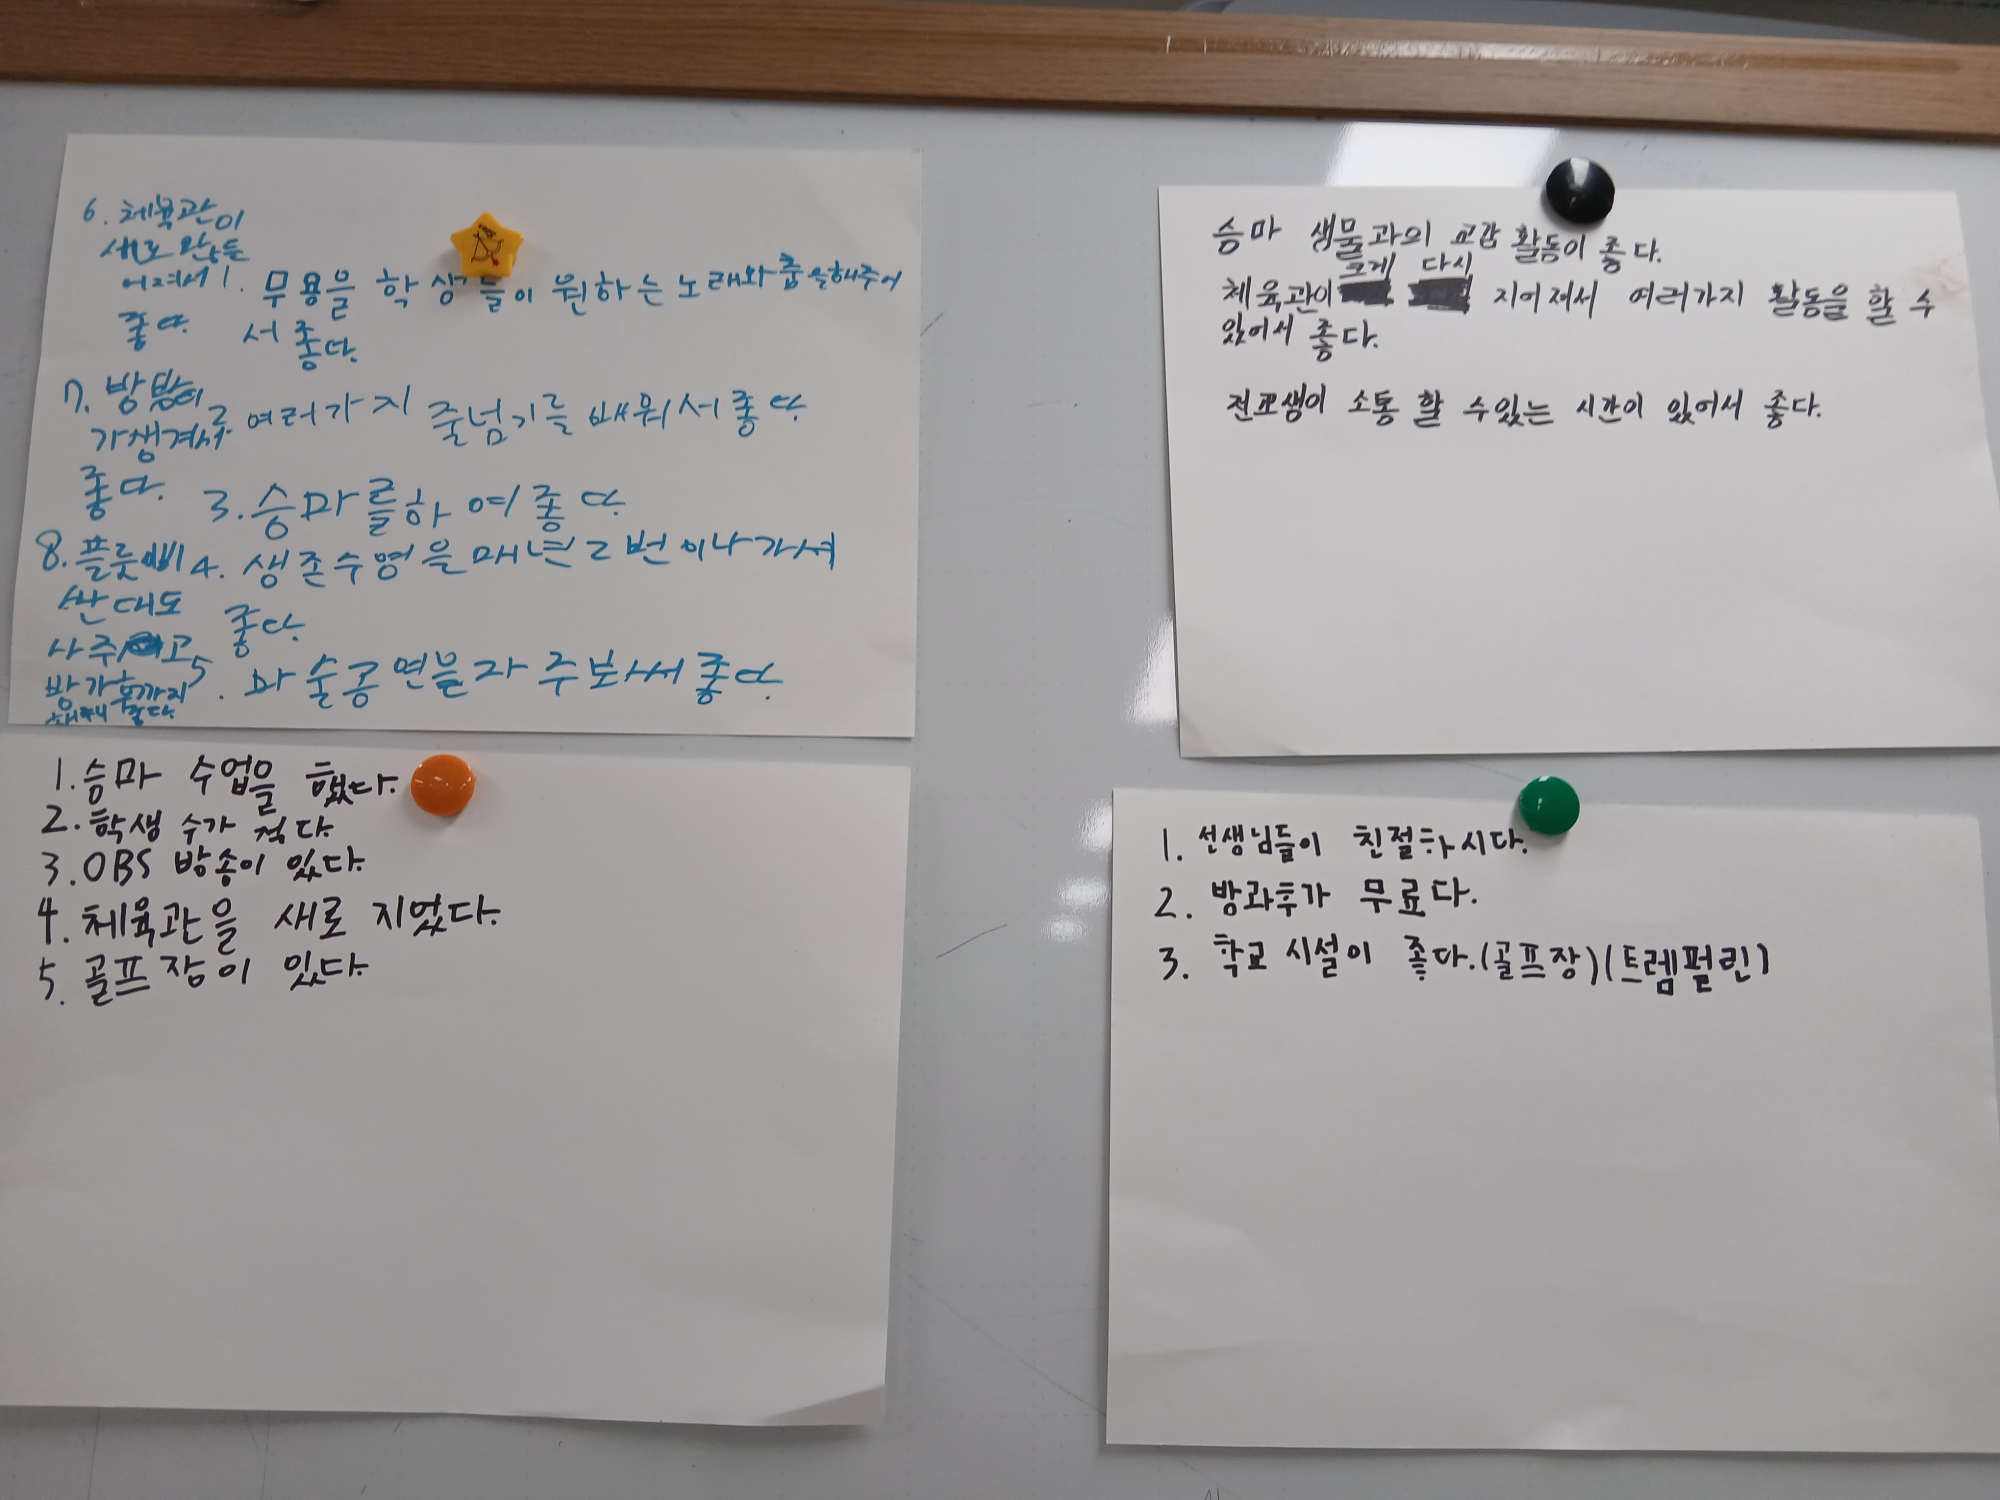 6. 체육관이
새로 만들
어져서
좋다.
1. 무용을 학생들이 원하는 노래와 춤을해주어
서 좋다.
7. 방방이
가생겨서
좋다.
2. 여러가지 줄넘기를 배워서좋다
3. 승마를하여좋다
8. 플룻
산대도
사주 고
방가후까지
해줘서 좋다.
4. 생존수영을매년2번이나가서
좋다.
5. 마술공연을자주보서좋다.
승마 생물과의 교감 활동이 좋다.
크게 다시
체육관이 지어져서 여러가지 활동을 할 수
있어서 좋다.
전교생이 소통 할 수있는 시간이 있어서 좋다.
1. 승마 수업을 했다.
2. 학생 수가 적다.
3. OBS 방송이 있다.
4. 체육관을 새로 지었다.
5. 골프장이 있다.
1. 선생님들이 친절하시다.
2. 방과후가 무료다.
3. 학교 시설이 좋다.(골프장)(트렘펄린)